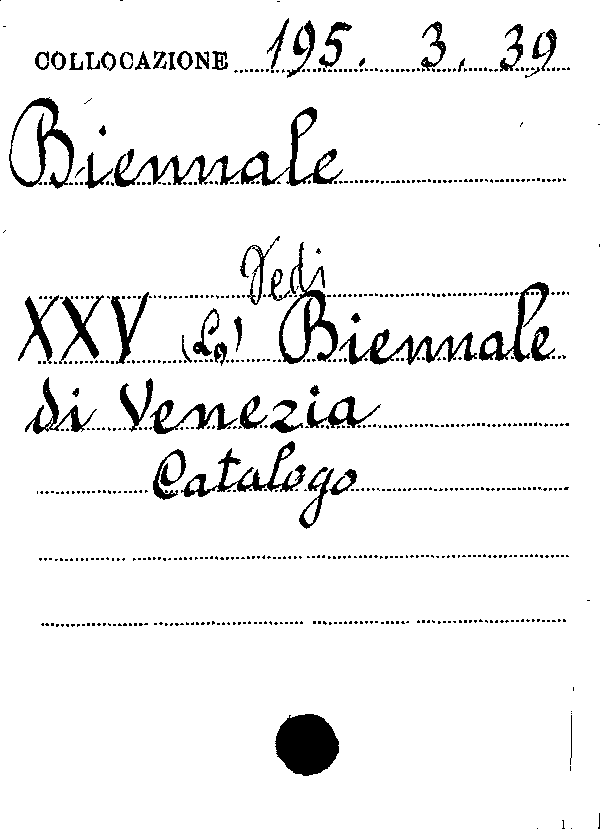 COLLOCAZIONE 195. 3. 39
Biennale
Vedi
XXV (La) Biennale
di Venezia
Catalogo
1.